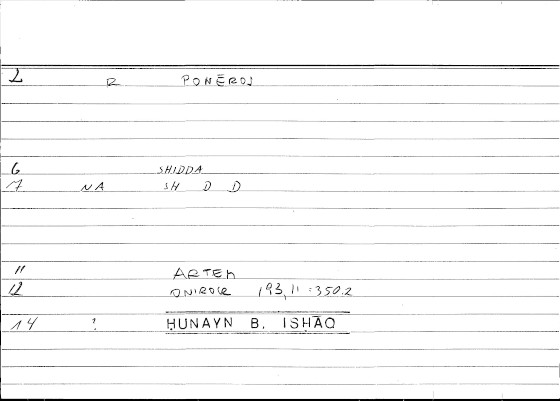 2 R PONĒROS
6 SHIDDA
7 NA SH D D
11 ARTEM
12 ONIROCR 193,11 = 350.2
14 ? ḤUNAYN B. ISḤĀQ